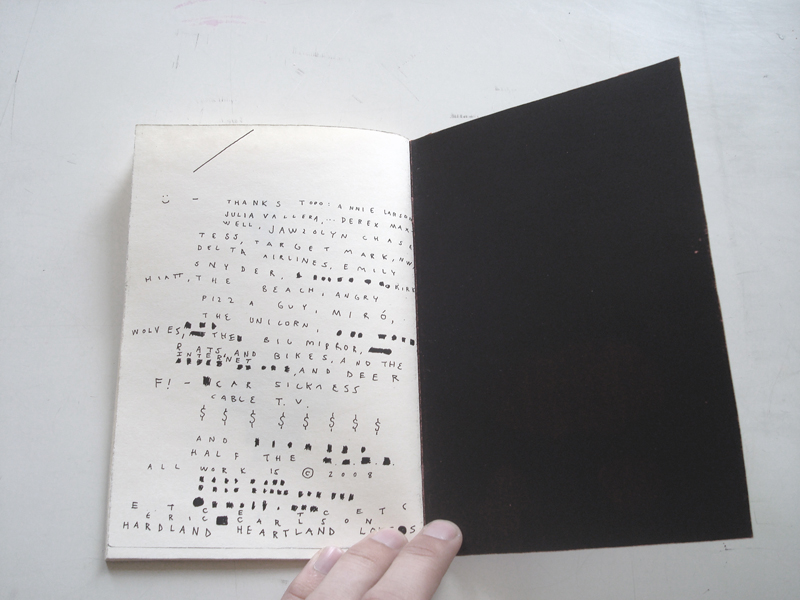 :) - THANKS TOPO: ANNIE LARSON
JULIA VALLERA,... DEREK MAX
WELL, JAWZOLYN CHASR
TESS, TARGET MARK, NW
DELTA AIRLINES, EMILY
SNYDER, KIRK
HIATT, THE BEACH, ANGRY
PIZZA GUY, MIRÓ,
THE UNICORN,
WOLVES, THE BIG MIRROR,
RATS, AND BIKES, AND THE
INTERNET
, AND DEER
F! - CAR SICKNESS
CABLE T.V.
$ $ $ $ $ $ $ $
AND
HALF THE
ALL WORK IS © 2008
ETC ETC ETC
ERIC CARLSON
HARDLAND HEARTLAND